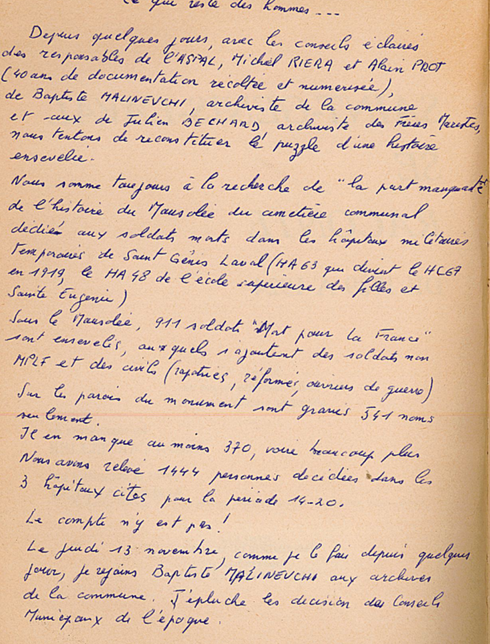 ce que reste des hommes ...
Depuis quelques jours, avec les conseils éclairés
des responsables de l'ASPAL, Michel RIERA et Alain PROT
(40 ans de documentation récoltée et numerisée),
de Baptiste MALINEVCHI, archiviste de la commune
et ceux de Julien BECHARD, archiviste des Frères Maristes,
nous tentons de reconstituer le puzzle d'une histoire
ensevelie.
Nous somme toujours à la recherche de "la part manquante"
de l'histoire du Mausolée du cimetière communal
dédiée aux soldats morts dans les hôpitaux militaires
temporaires de Saint Genis Laval (HA 63 qui devint le HC67
en 1919, le HA 48 de l'école supérieure des filles et
Sainte Eugenie)
Sous le Mausolée, 911 soldats "Mort pour la France"
sont ensevelis, auxquels s'ajoutent des soldats non
MPLF et des civils (rapatriés, réformés, ouvriers de guerre)
Sur les parois du monument sont gravés 541 noms
seulement.
Il en manque au moins 370, voire beaucoup plus
Nous avons relevé 1444 personnes décédées dans les
3 hôpitaux cités pour la période 14-20.
Le compte n'y est pas !
Le jeudi 13 novembre, comme je le fais depuis quelques
jour, je rejoins Baptiste MALINEVCHI aux archives
de la commune. J'épluche les décision des Conseils
Municipaux de l'époque.